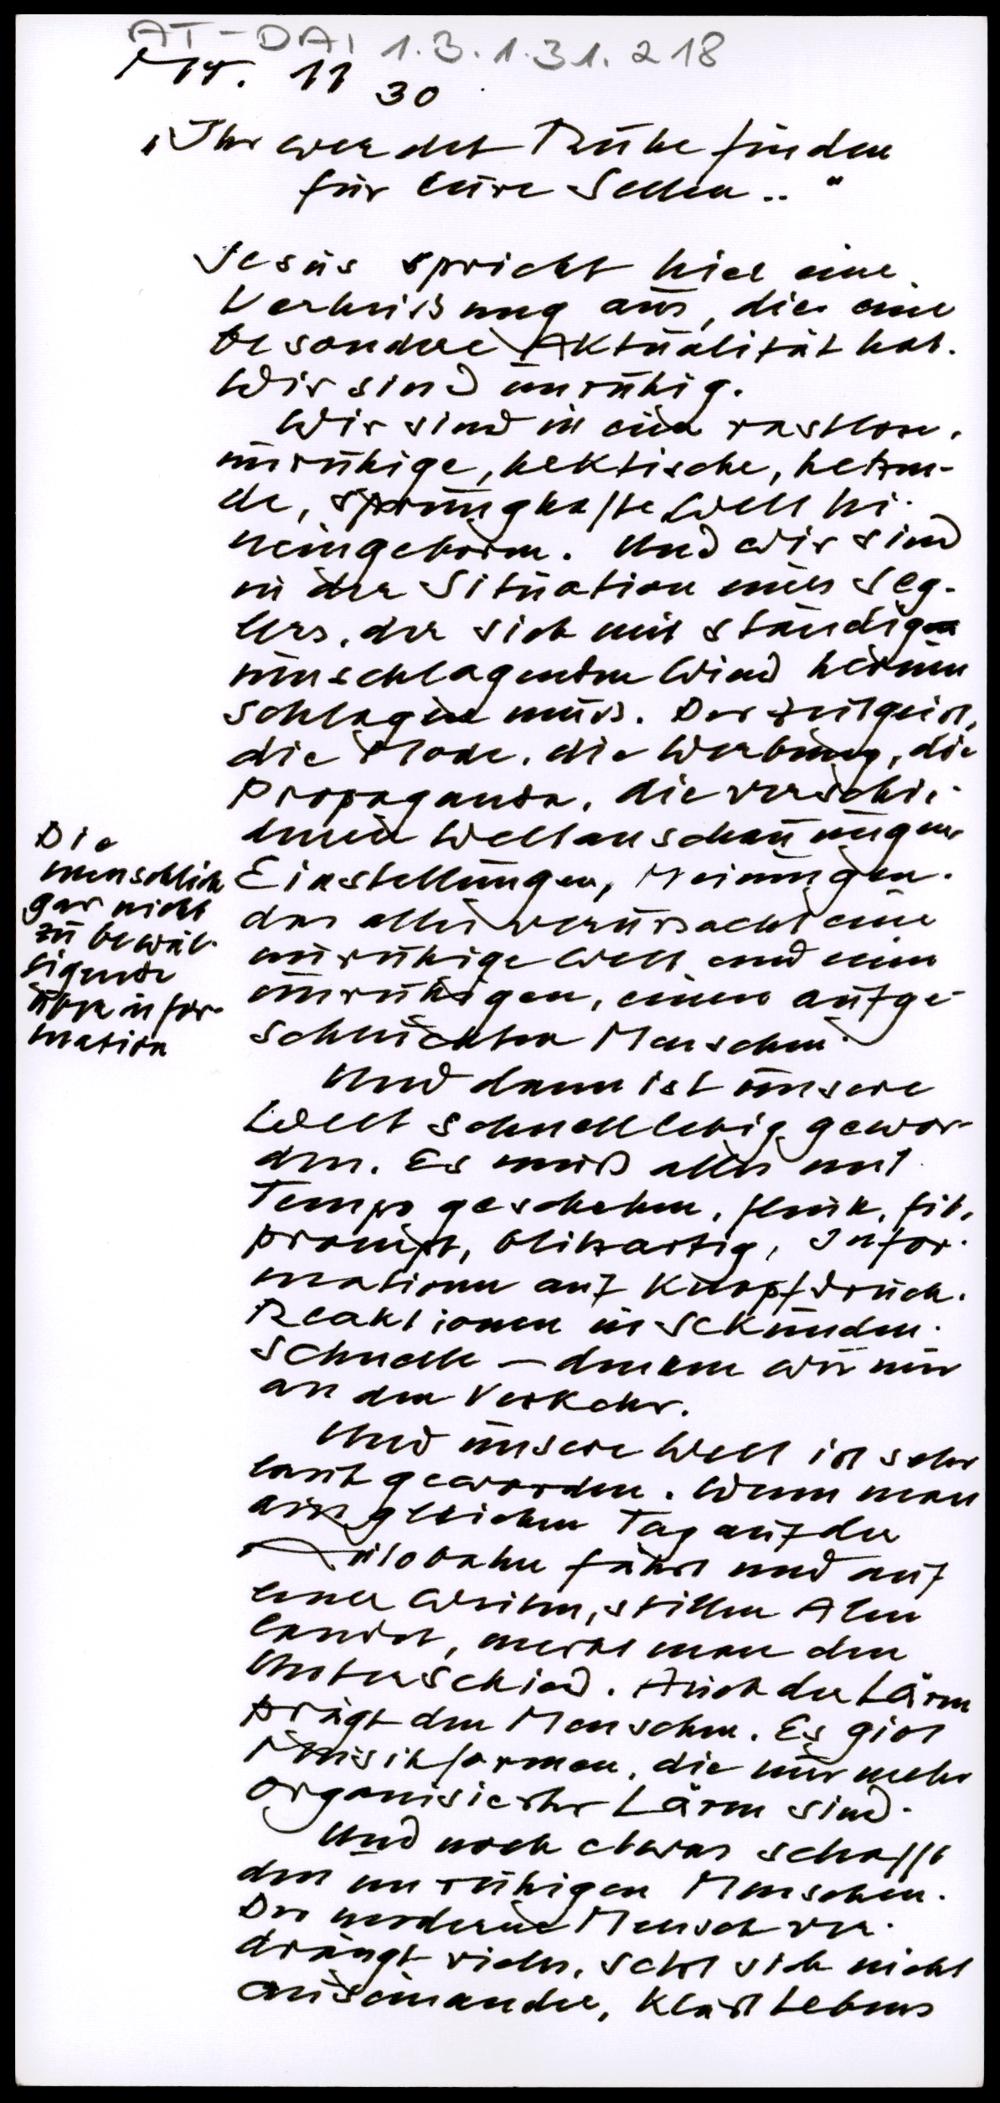 AT-DAI 1.3.1.31.218
Mt. 11 30
„Ihr werdet Ruhe finden
für Eure Seelen.."
Jesus spricht hier eine
Verheißung aus, die eine
besondere Aktualität hat.
Wir sind unruhig.
Wir sind in eine rastlose,
unruhige, hektische, hetzen-
de, sprunghafte Welt hi-
neingeboren. Und wir sind
in der Situation eines Seg-
lers, der sich mit ständig
umschlagendem Wind herum
schlagen muss. Der Zeitgeist,
die Mode, die Werbung, die
Propaganda, die verschie-
denen Weltanschauungen
Einstellungen, Meinungen.
Die
menschlich
gar nicht
zu bewäl-
tigende
Überinfor-
mation
das alles verursacht eine
unruhige Welt und einen
unruhigen, einen aufge-
scheuchten Menschen.
Und dann ist unsere
Welt schnelllebig gewor-
den. Es muß alles mit
Tempo geschehen, flink, fit,
prompt, blitzartig, Infor-
mationen auf Knopfdruck.
Reaktionen in Sekunden-
schnelle – denken wir nur
an den Verkehr.
Und unsere Welt ist sehr
laut geworden. Wenn man
am gleichen Tag auf der
Autobahn fährt und auf
einer weiten, stillen Alm
landet, merkt man den
Unterschied. Auch der Lärm
prägt den Menschen. Es gibt
Musikformen, die nur mehr
organisierter Lärm sind.
Und noch etwas schafft
den unruhigen Menschen.
Der moderne Mensch ver-
drängt vieles, setzt sich nicht
auseinander, klärt Lebens